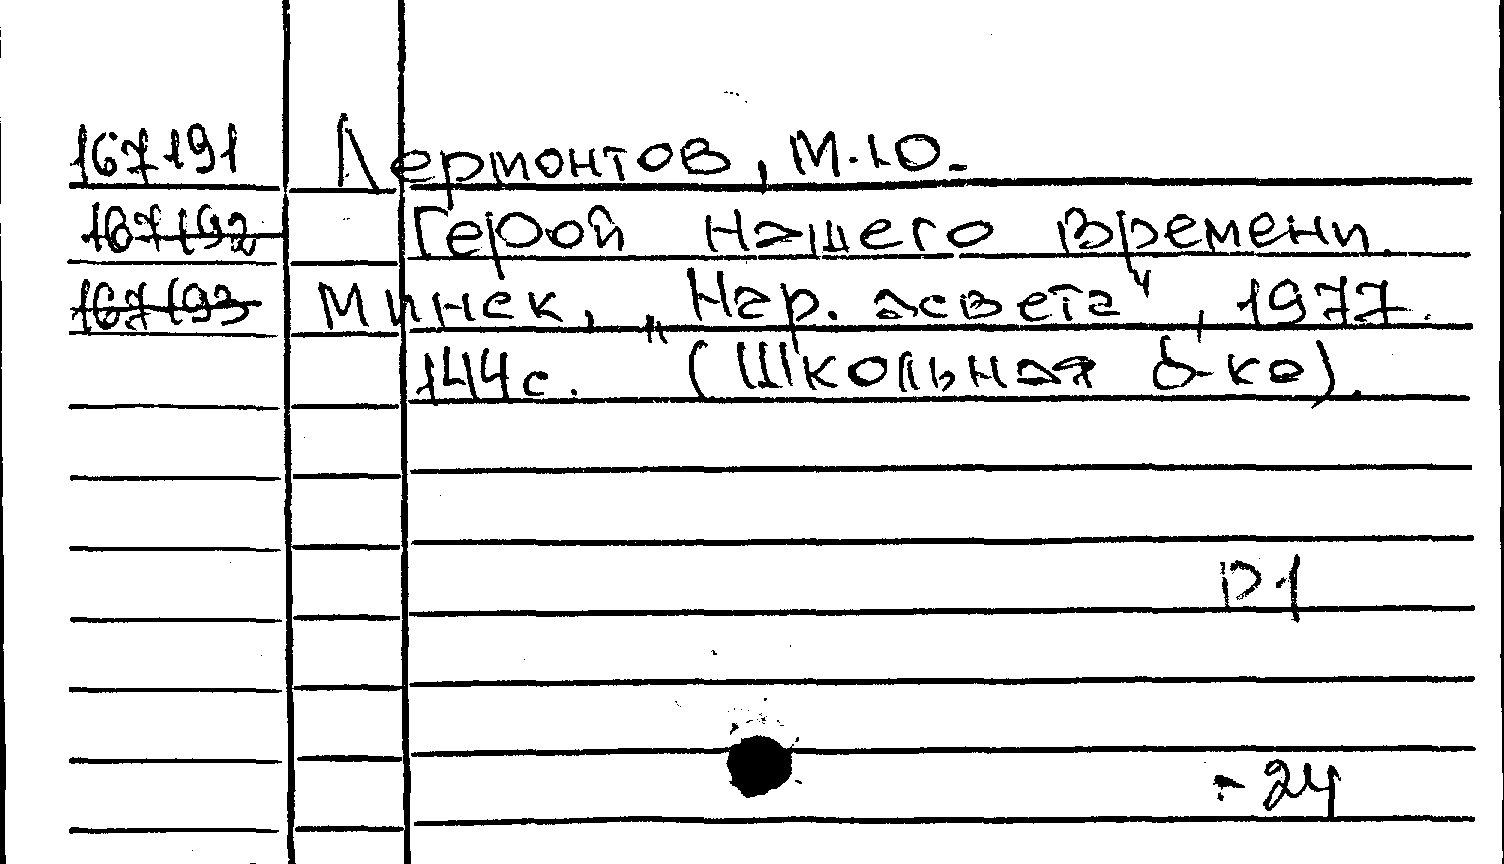 167191 Лермонтов, М.Ю.
167192 Герой нашего времени.
167193 Минск, „Нар. асвета", 1977.
144с. (Школьная б-ка).
Р1
- 24